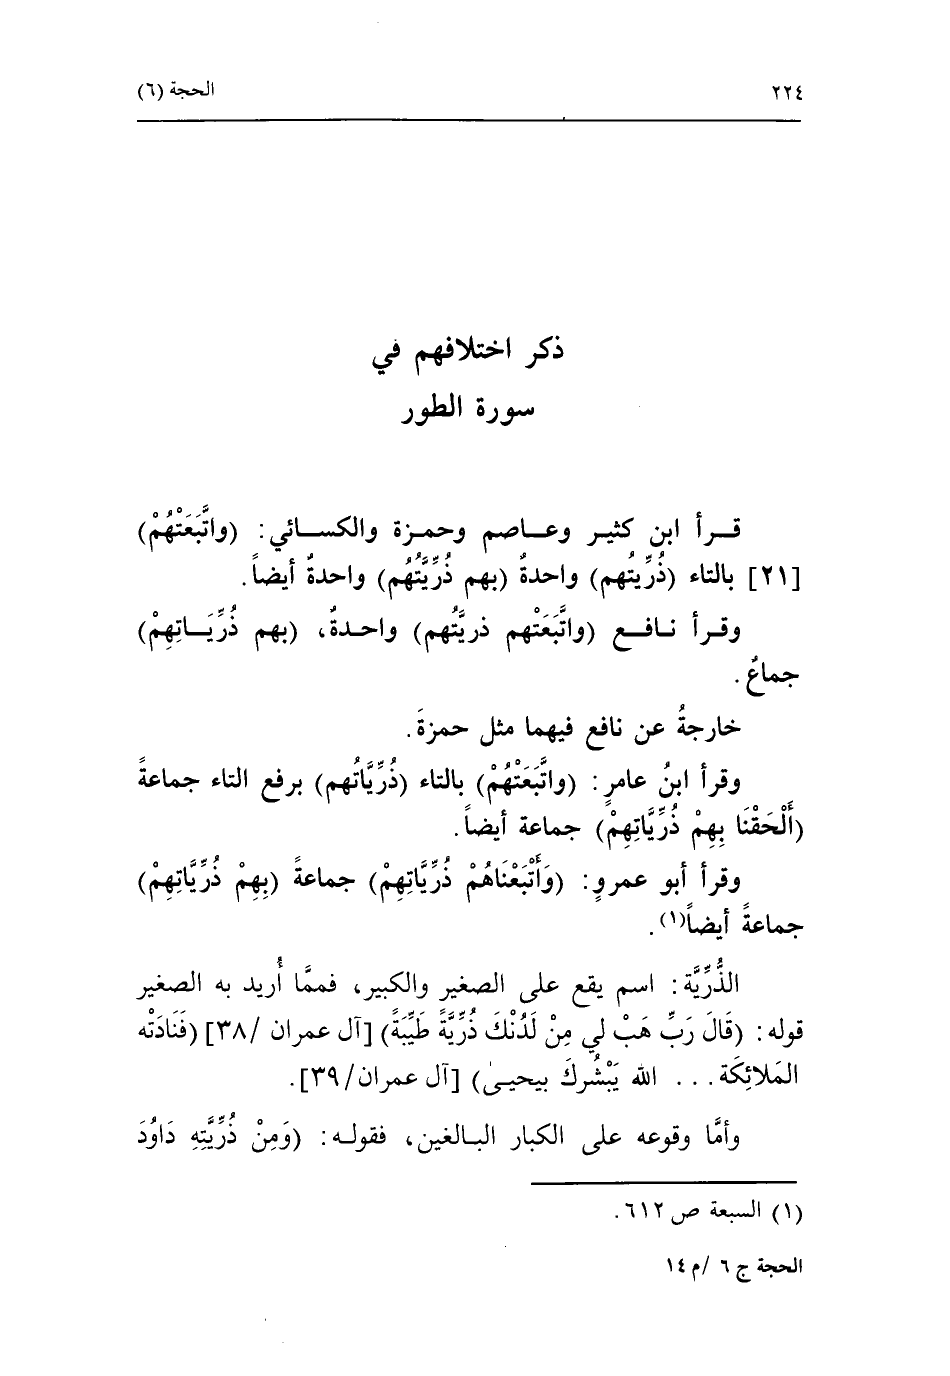 ٢٢٤
الحجة (٦)
ذكر اختلافهم في
سورة الطور
قـرأ ابن كثيـر وعـاصم وحمـزة والكسـائي: (واتَّبَعَتْهُمْ)
[٢١] بالتاء (ذُرِّيتهم) واحدةٌ (بهم ذُرِّيَّتُهُم) واحدةٌ أيضاً.
وقـرأ نـافـع (واتَّبَعَتْهم ذريَّتُهم) واحـدةٌ، (بهم ذُرِّيَـاتِهِمْ)
جماعٌ.
خارجةُ عن نافع فيهما مثل حمزةَ.
وقرأ ابنُ عامرٍ: (واتَّبَعَتْهُمْ) بالتاء (ذُرِّيَّاتُهم) برفع التاء جماعةً
(أَلْحَقْنَا بِهِمْ ذُرِّيَّاتِهِمْ) جماعة أيضاً.
وقرأ أبو عمروٍ: (وَأَتْبَعْنَاهُمْ ذُرِّيَّاتِهِمْ) جماعةً (بِهِمْ ذُرِّيَّاتِهِمْ)
جماعةً أيضاً(١).
الذُّرِّيَّة: اسم يقع على الصغير والكبير، فممَّا أُريد به الصغير
قوله: (قَالَ رَبِّ هَبْ لي مِنْ لَدُنْكَ ذُرِّيَّةً طَيِّبَةً) [آل عمران /٣٨] (فَنَادَتْه
المَلائِكَة... الله يَبْشُركَ بيحيىٰ) [آل عمران/٣٩].
وأمَّا وقوعه على الكبار البـالغين، فقولـه: (وَمِنْ ذُرِّيَّتِهِ دَاوُدَ
(١) السبعة ص ٦١٢.
الحجة ج ٦ /م ١٤